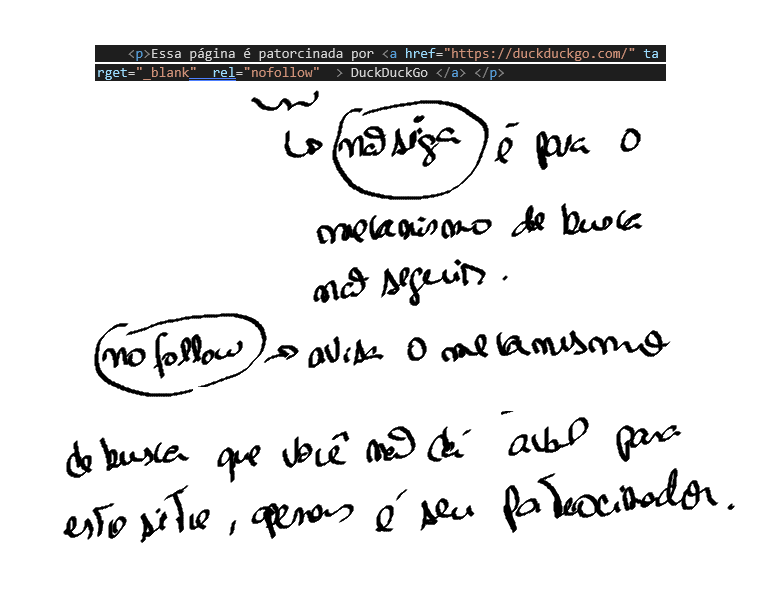 <p>Essa página é patorcinada por <a href="https://duckduckgo.com/" ta
rget="_blank"  rel="nofollow"  > DuckDuckGo </a> </p>
não siga é para o
mecanismo de busca
não seguir.
nofollow → avisa o mecanismo
de busca que você não dá aval para
esto sitie, apenas é seu patrocinador.